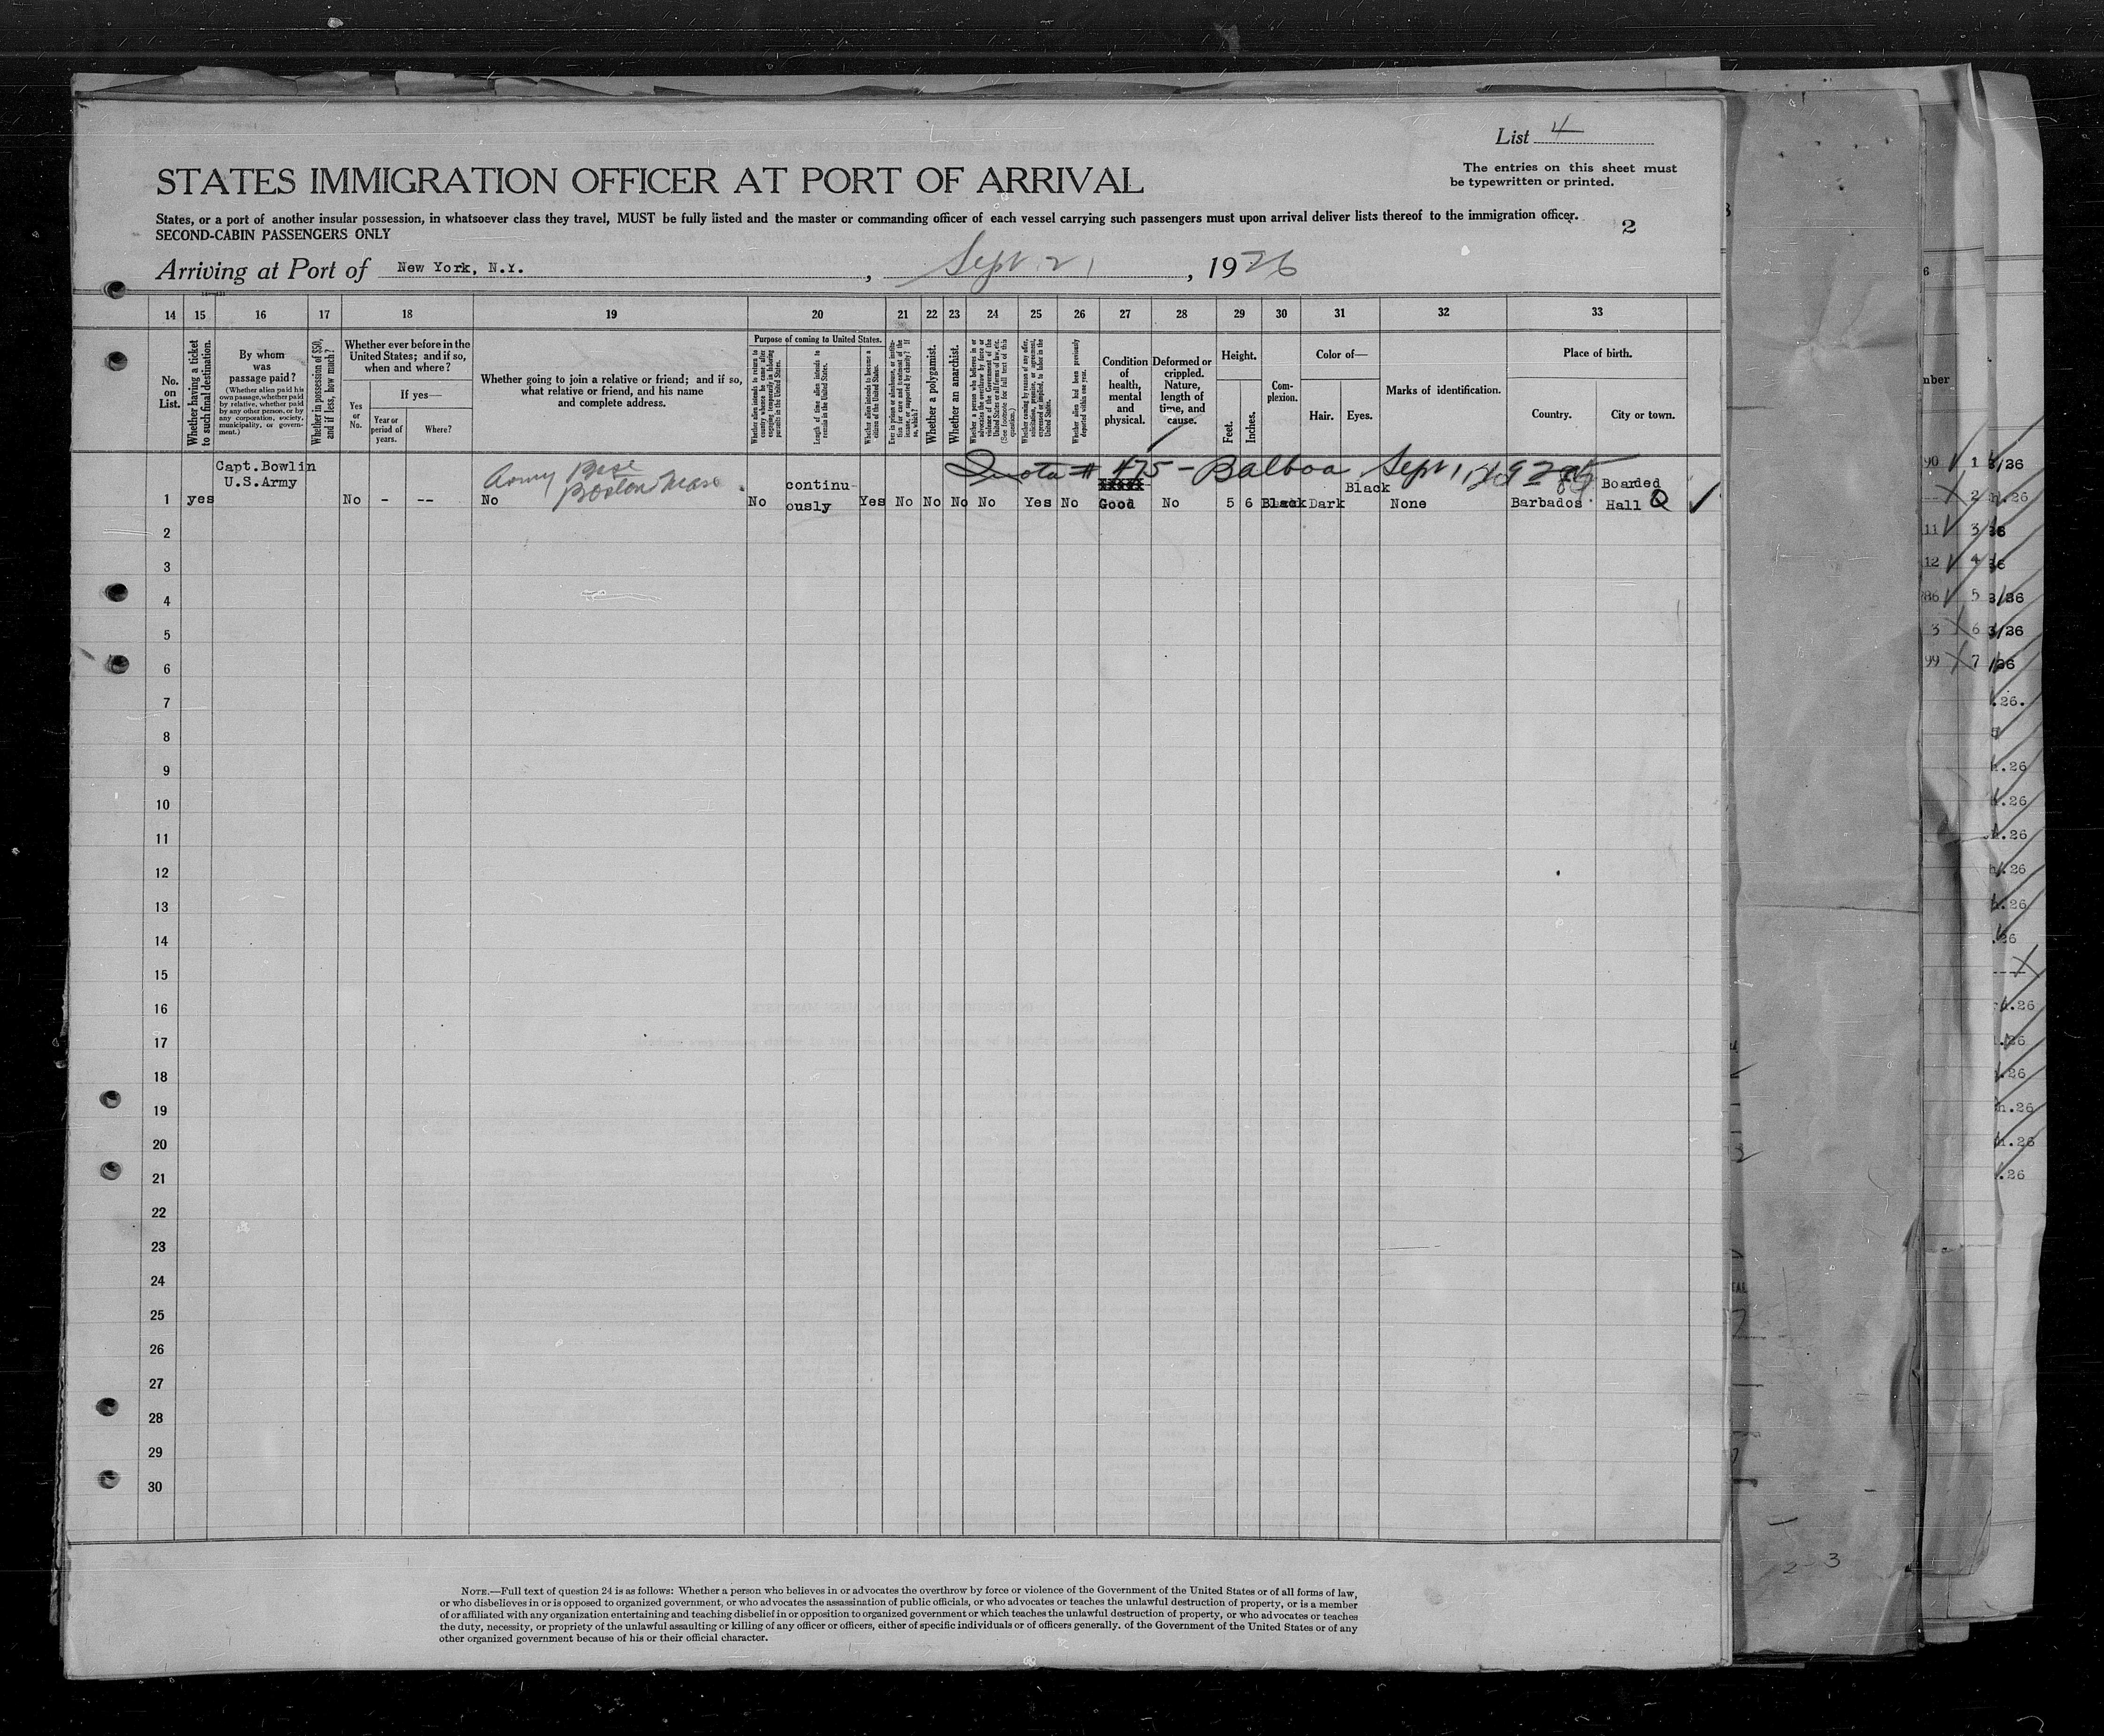 List 4
The entries on this sheet must
be typewritten or printed.
STATES IMMIGRATION OFFICER AT PORT OF ARRIVAL
States, or a port of another insular possession, in whatsoever class they travel, MUST be fully listed and the master or commanding officer of each vessel carrying such passengers must upon arrival deliver lists thereof to the immigration officer.
SECOND-CABIN PASSENGERS ONLY
2
Arriving at Port of New York, N.Y. , Sept 21 , 1926
14 15 16 17 18 19 20 21 22 23 24 25 26 27 28 29 30 31 32 33
No. on List.
Whether having a ticket to such final destination.
By whom was passage paid?
(Whether alien paid his own passage, whether paid by relative, whether paid by any other person, or by any corporation, society, municipality, or government.)
Whether in possession of $50, and if less, how much?
Whether ever before in the United States; and if so, when and where?
Yes or No.
If yes—
Year or period of years.
Where?
Whether going to join a relative or friend; and if so, what relative or friend, and his name and complete address.
Purpose of coming to United States.
Whether alien intends to return to country whence he came after engaging temporarily in laboring pursuits in the United States.
Length of time alien intends to remain in the United States.
Whether alien intends to become a citizen of the United States.
Ever in prison or almshouse, or institution for care and treatment of the insane, or supported by charity? If so, which?
Whether a polygamist.
Whether an anarchist.
Whether a person who believes in or advocates the overthrow by force or violence of the Government of the United States or all forms of law, etc. (See footnote for full text of this question.)
Whether coming by reason of any offer, solicitation, promise, or agreement, expressed or implied, to labor in the United States.
Whether alien had been previously deported within one year.
Condition of health, mental and physical.
Deformed or crippled. Nature, length of time, and cause.
Height.
Feet.
Inches.
Complexion.
Color of—
Hair.
Eyes.
Marks of identification.
Place of birth.
Country.
City or town.
Quota # 475 - Balboa Sept 1,
Capt.Bowlin
U.S.Army
Army Base
Boston Mass
1 yes No - -- No No continu-
ously Yes No No No No Yes No Good No 5 6 Black Dark Black None Barbados Boarded
Hall Q
2
3
4
5
6
7
8
9
10
11
12
13
14
15
16
17
18
19
20
21
22
23
24
25
26
27
28
29
30
NOTE.—Full text of question 24 is as follows: Whether a person who believes in or advocates the overthrow by force or violence of the Government of the United States or of all forms of law,
or who disbelieves in or is opposed to organized government, or who advocates the assassination of public officials, or who advocates or teaches the unlawful destruction of property, or is a member
of or affiliated with any organization entertaining and teaching disbelief in or opposition to organized government or which teaches the unlawful destruction of property, or who advocates or teaches
the duty, necessity, or propriety of the unlawful assaulting or killing of any officer or officers, either of specific individuals or of officers generally. of the Government of the United States or of any
other organized government because of his or their official character.